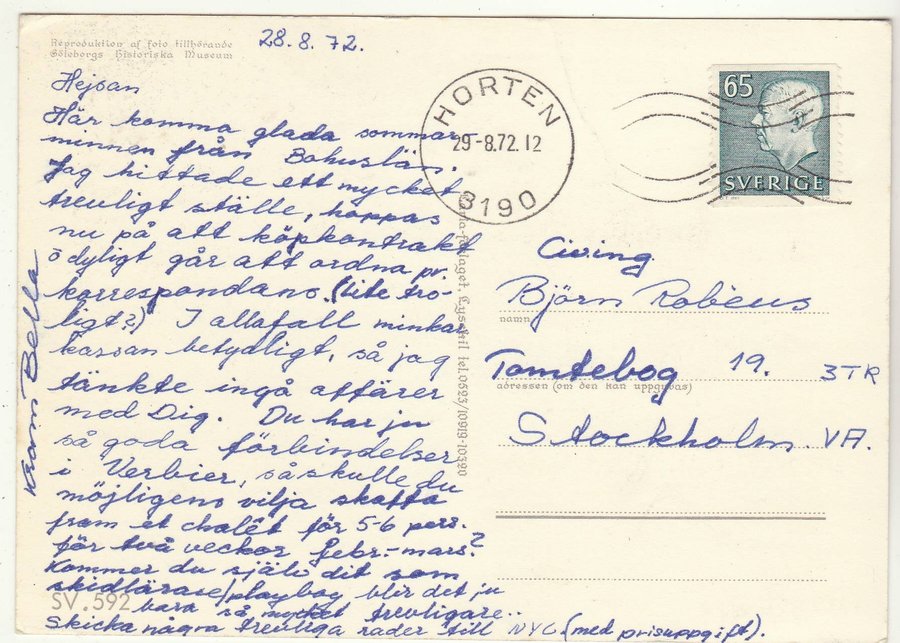 Reproduktion af foto tillhörande
Göteborgs Historiska Museum
28.8.72.
Hejsan
Här komma glada sommar-
minnen från Bohuslän.
Jag hittade ett mycket
trevligt ställe, hoppas
nu på att köpkontrakt
o dyligt går att ordna pr.
korrespondans. (Lite tro-
ligt?) I allafall minkar
kassan betydligt, så jag
tänkte ingå affärer
med Dig. Du har ju
så goda förbindelser
i Verbier, så skulle du
möjligens vilja skaffa
fram et chalêt för 5-6 pers.
för två veckor febr.-mars?
Kommer du själv dit som
skidlärare/playboy blir det ju
bara så mycket trevligare..
Skicka några trevliga rader till NYC. (med prisuppgift).
Kram Bella
SV.592
Lysekil tel. 0523/10919-10320
HORTEN
29-8.72.12
3190
65
SVERIGE
Civing
Björn Robèus
namn
Tomtebog 19. 3TR
adressen (om den kan uppgivas)
Stockholm. VA.